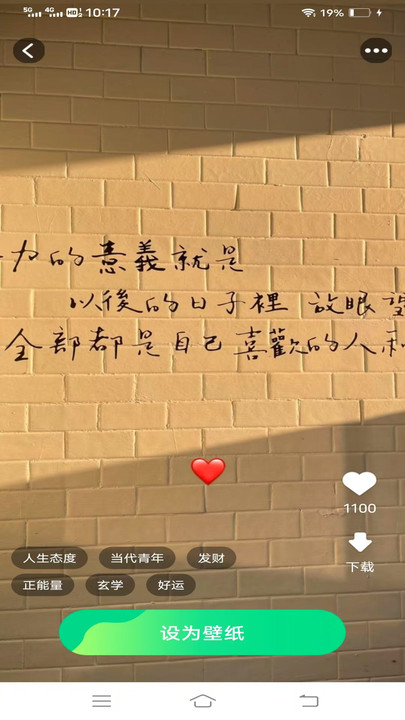 5G 4G HD 10:17 19%
力的意義就是
以後的日子裡 放眼望
全部都是自己喜歡的人和
1100
下载
人生态度 当代青年 发财
正能量 玄学 好运
设为壁纸